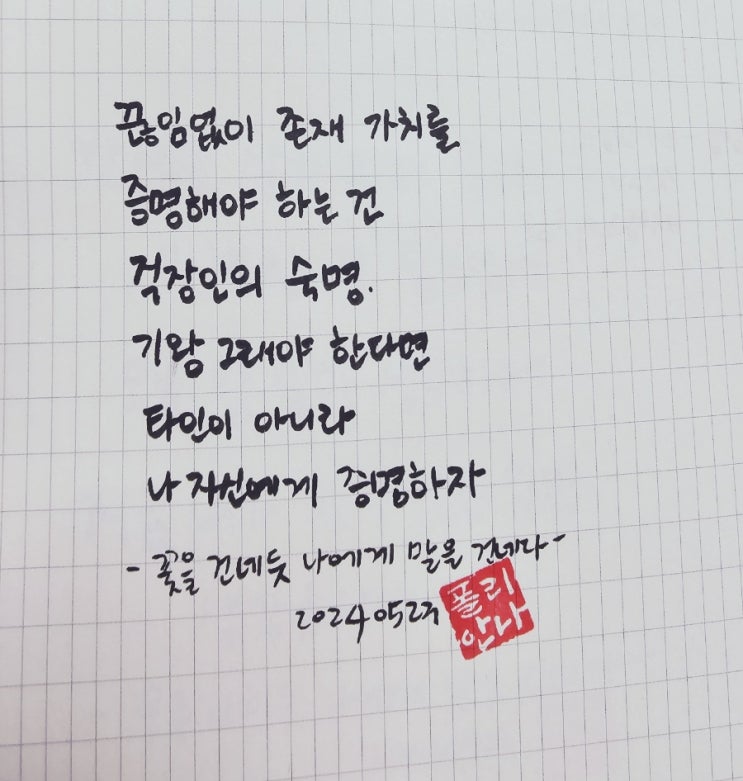 끊임없이 존재 가치를
증명해야 하는 건
직장인의 숙명.
기왕 그래야 한다면
타인이 아니라
나 자신에게 증명하자
- 꽃을 건네듯 나에게 말을 건네다 -
폴리
안나